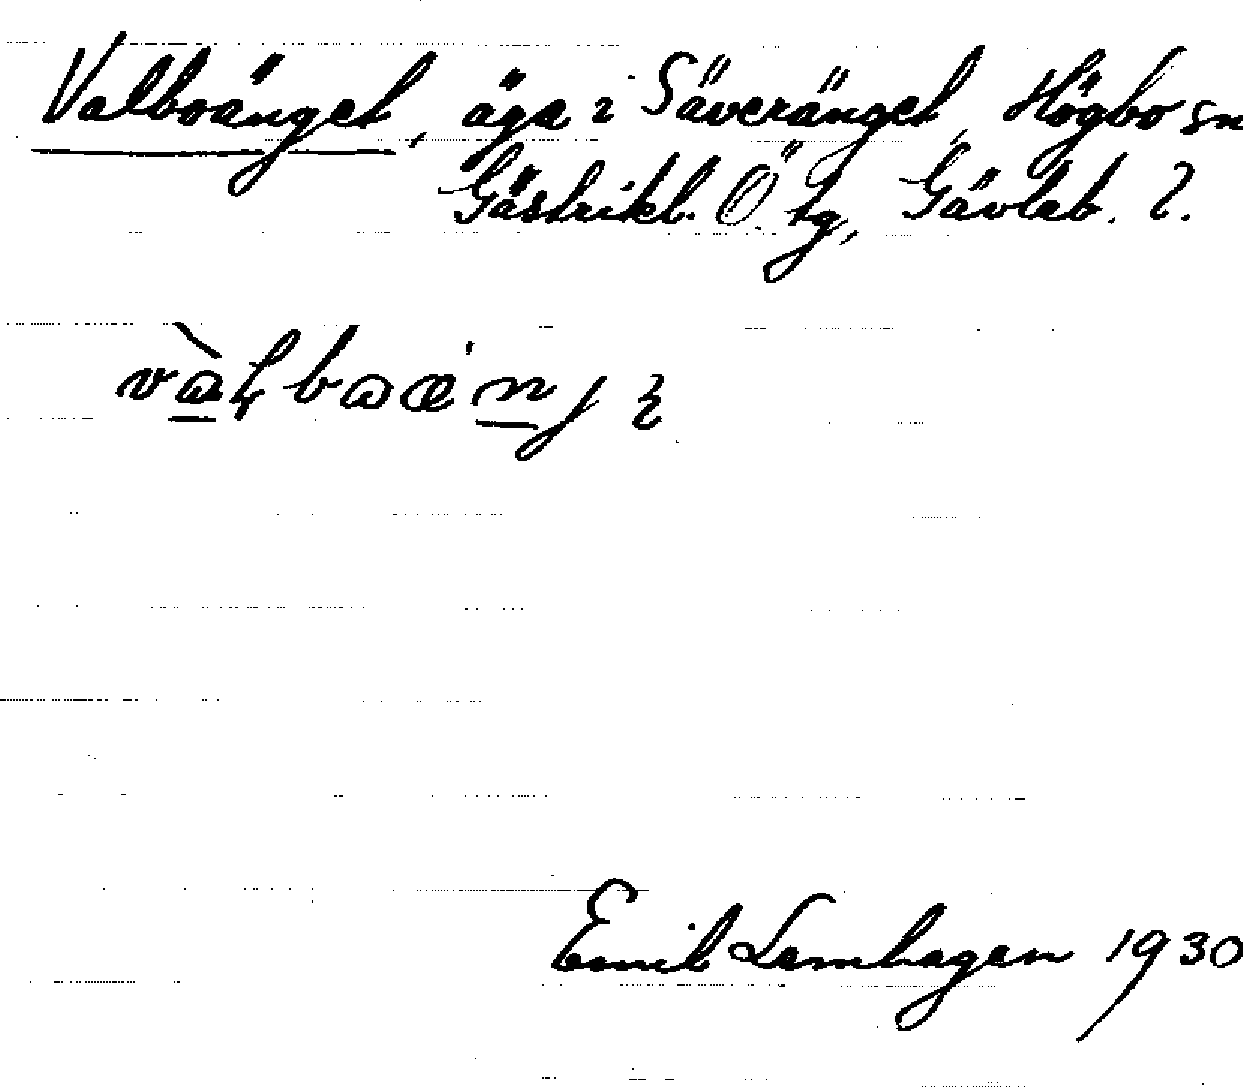 Valboänget, äga i Säveränget, Högbo sn
Gästrikl. Ö. tg, Gävleb. l.
Emil Lemhagen 1930